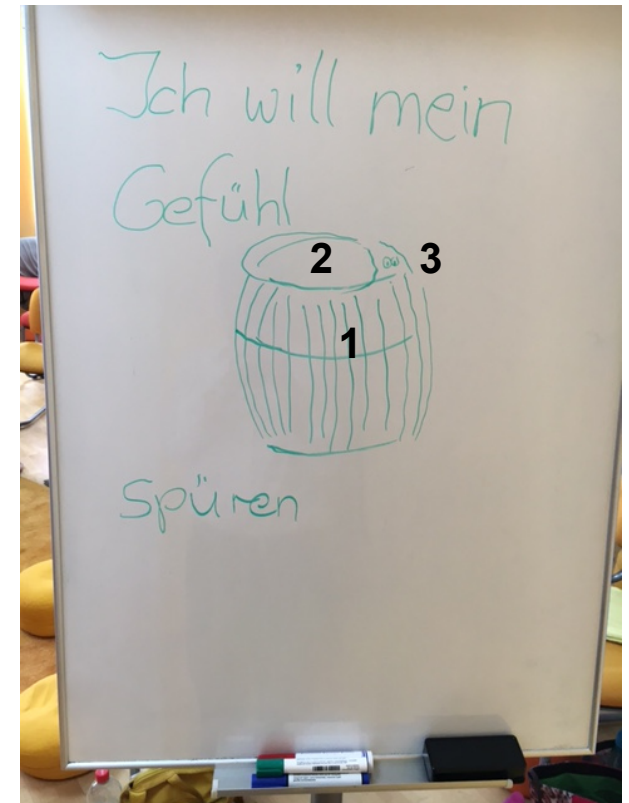 Ich will mein
Gefühl
2 3
1
Spüren